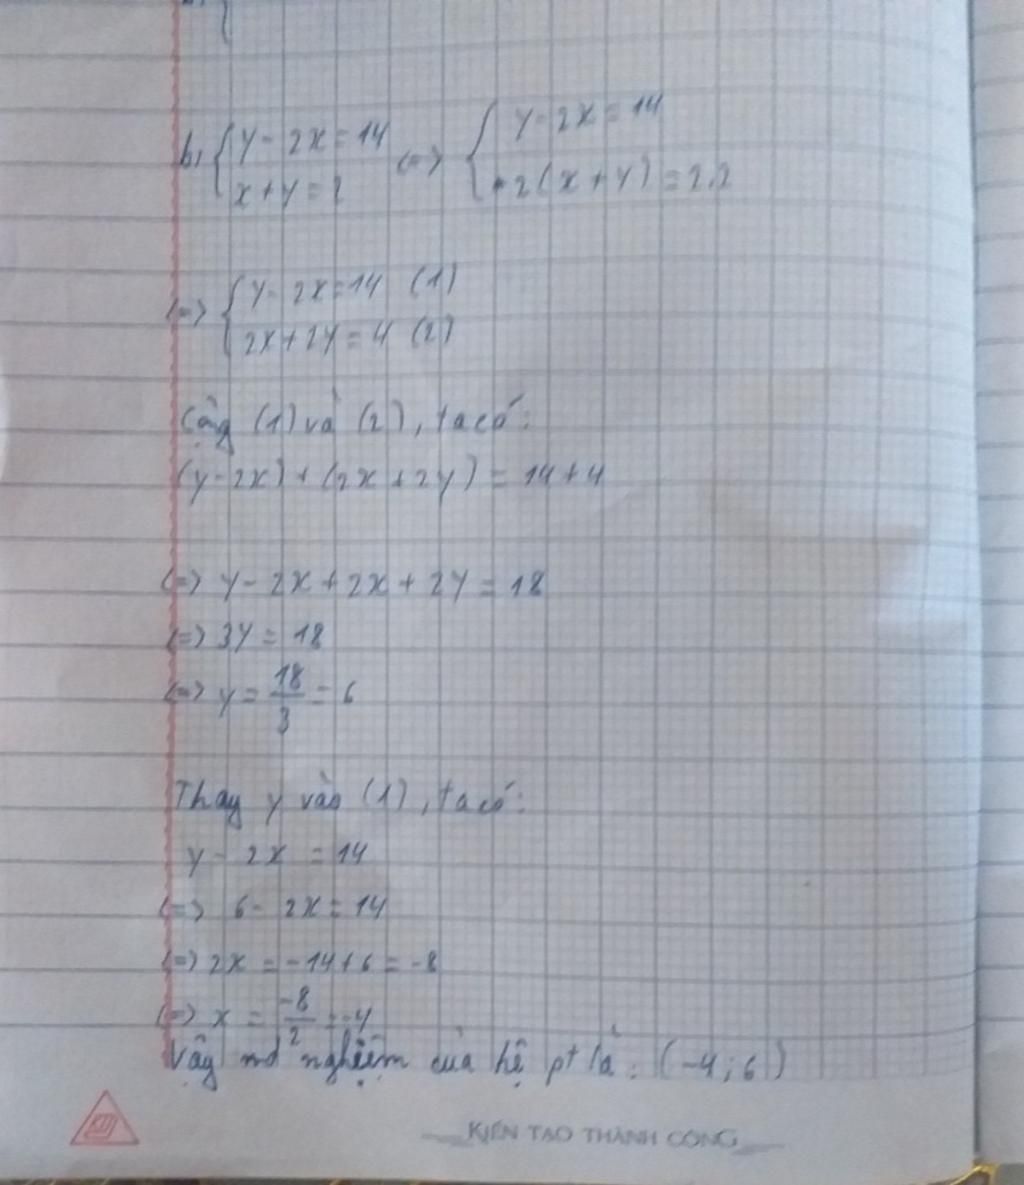 b, { y - 2x = 14 <=> { y - 2x = 14
x + y = 2 2(x + y) = 2.2
<=> { y - 2x = 14 (1)
2x + 2y = 4 (2)
Cộng (1) và (2), ta có:
(y - 2x) + (2x + 2y) = 14 + 4
<=> y - 2x + 2x + 2y = 18
<=> 3y = 18
<=> y = 18/3 = 6
Thay y vào (1), ta có:
y - 2x = 14
<=> 6 - 2x = 14
<=> 2x = -14 + 6 = -8
<=> x = -8/2 = -4
Vậy nghiệm của hệ pt là: (-4; 6)
KIẾN TẠO THÀNH CÔNG